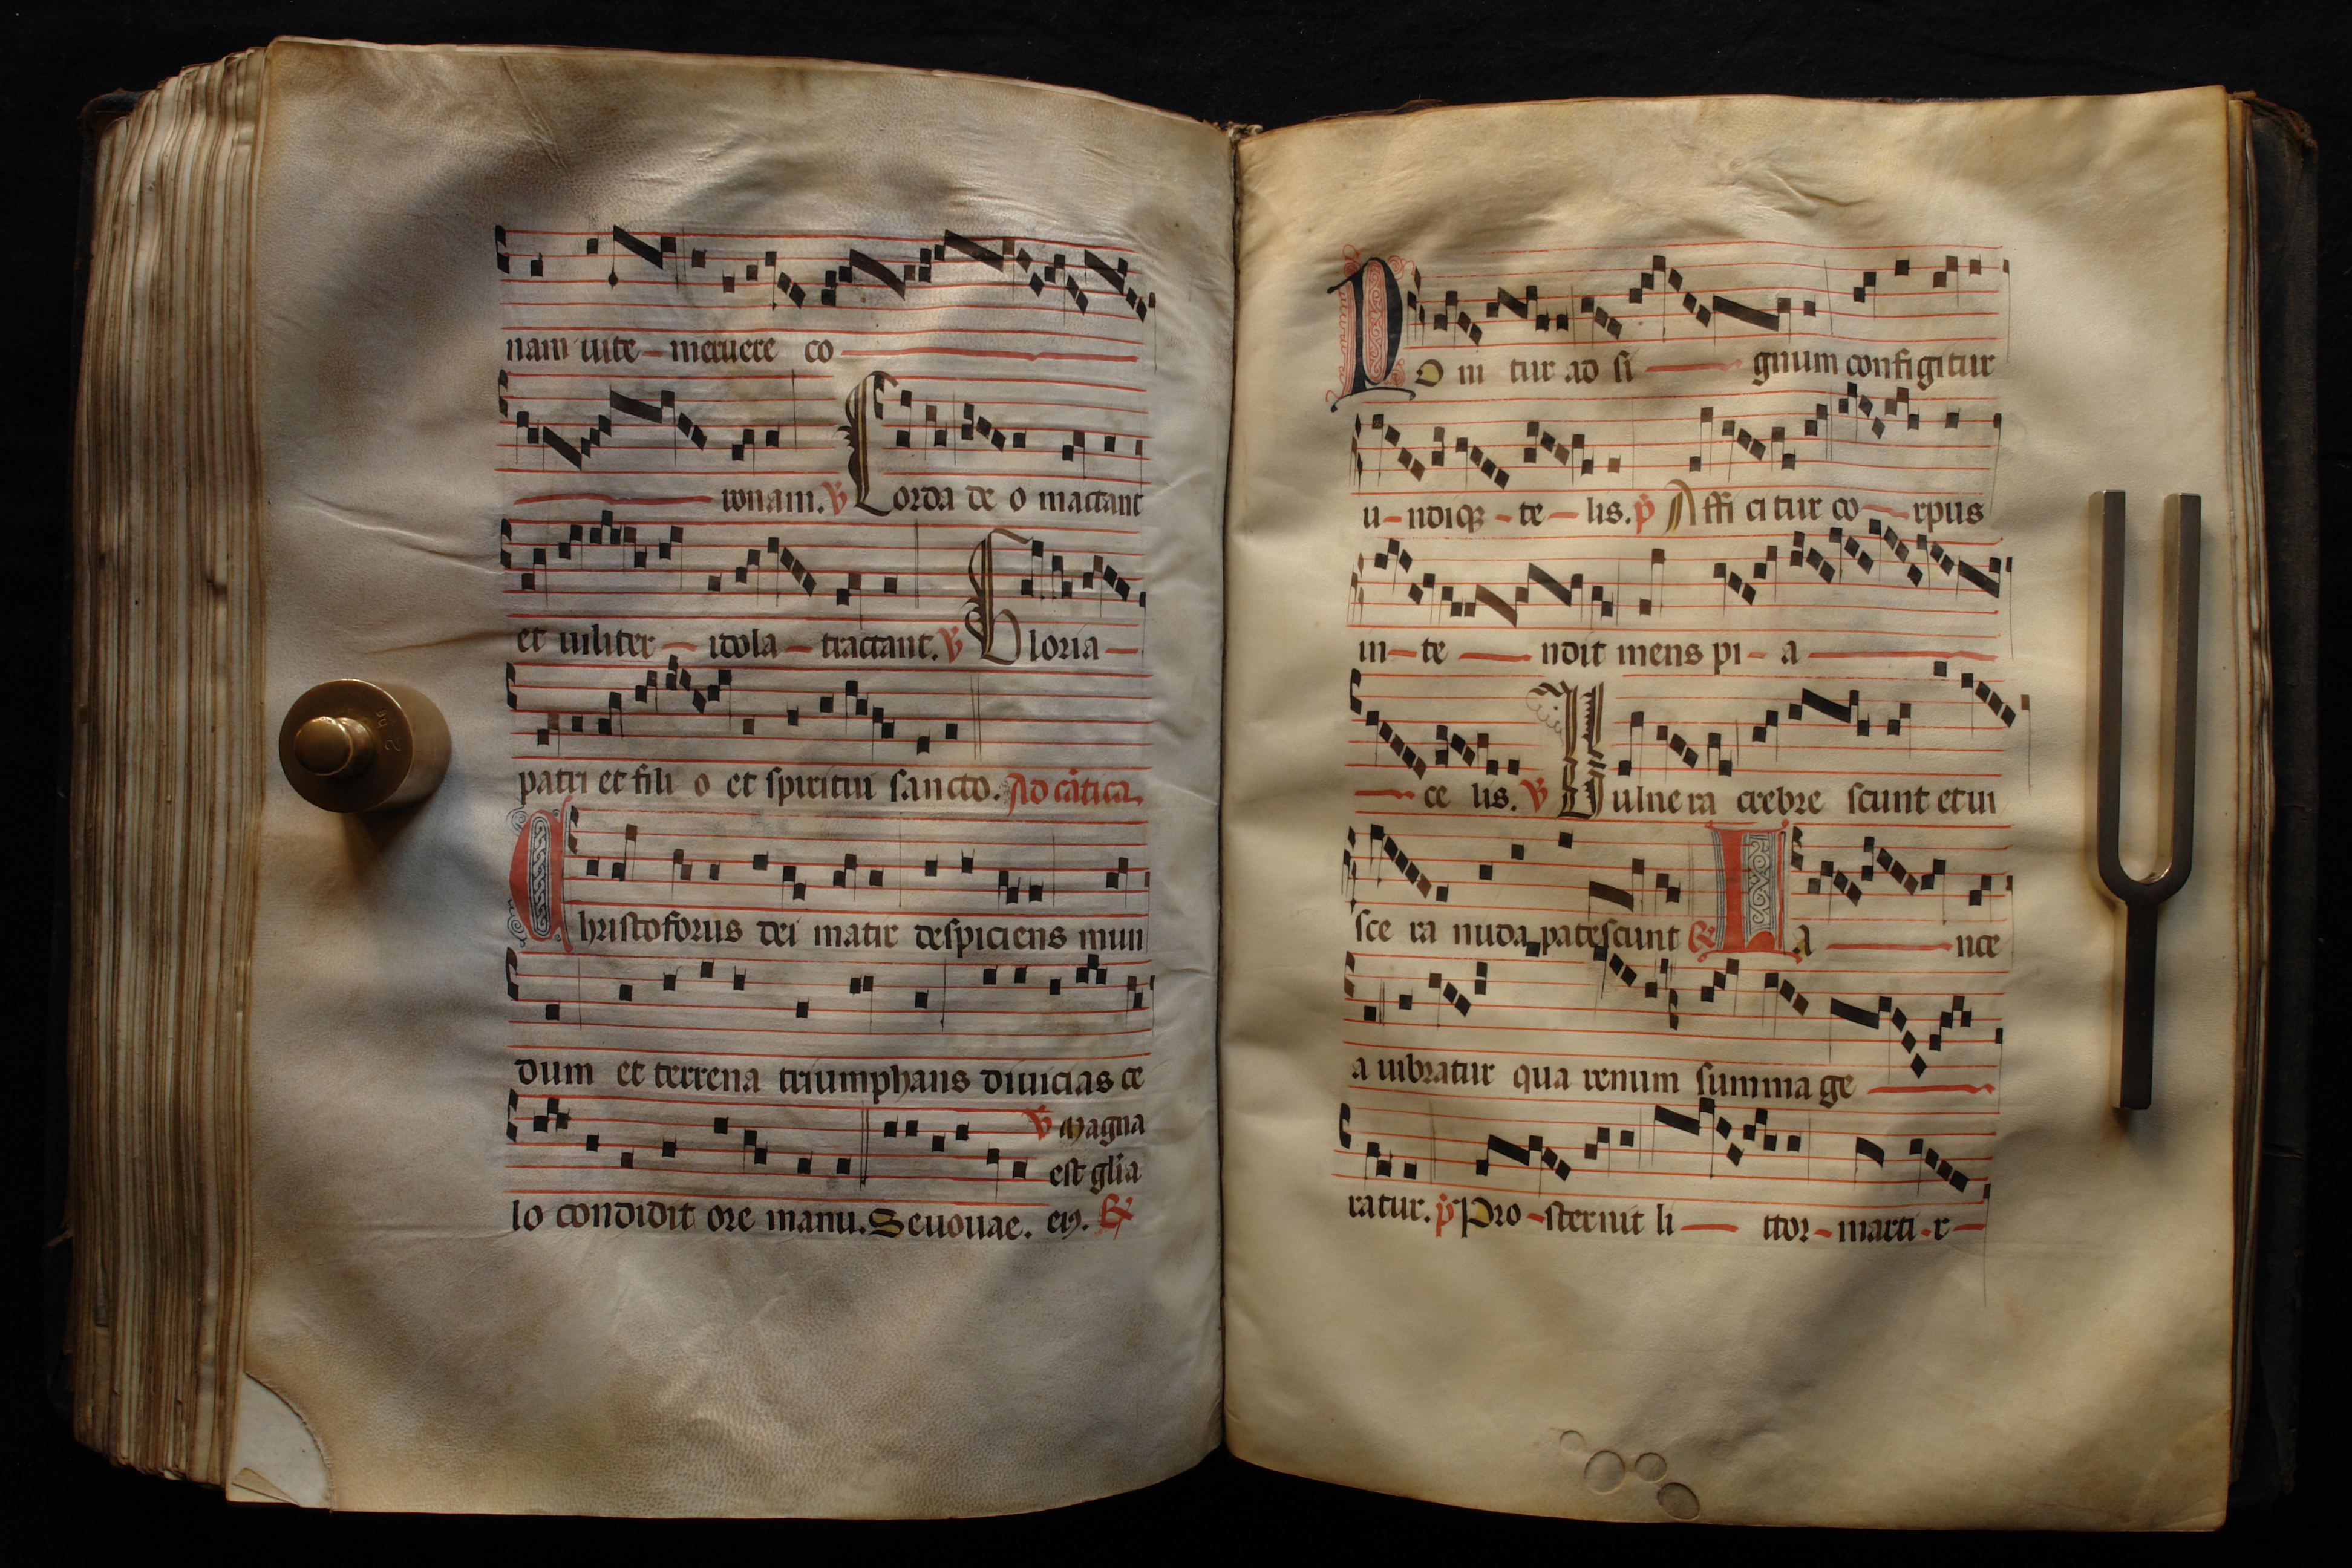 nam uite meruere co
ronam. ℣ Corda deo mactant
et uiliter idola tractant. ℣ Gloria
patri et fili o et spiritui sancto. Ad cātica
Christoforus dei martir despiciens mun
dum et terrena triumphans diuicias ce
℣ Magna
est gl̄ia
lo condidit ore manu. Seuouae. eiꝯ. ℟
Ponitur ad si gnum configitur
u ndiqꝫ te lis. p̄ Affi citur co rpus
in te ndit mens pi a
ce lis. ℣ Uulne ra crebre scunt et ui
sce ra nuda patescunt ℟ La nce
a uibratur qua renum summa ge
ratur. p̄ Pro sternit li ttor marti r